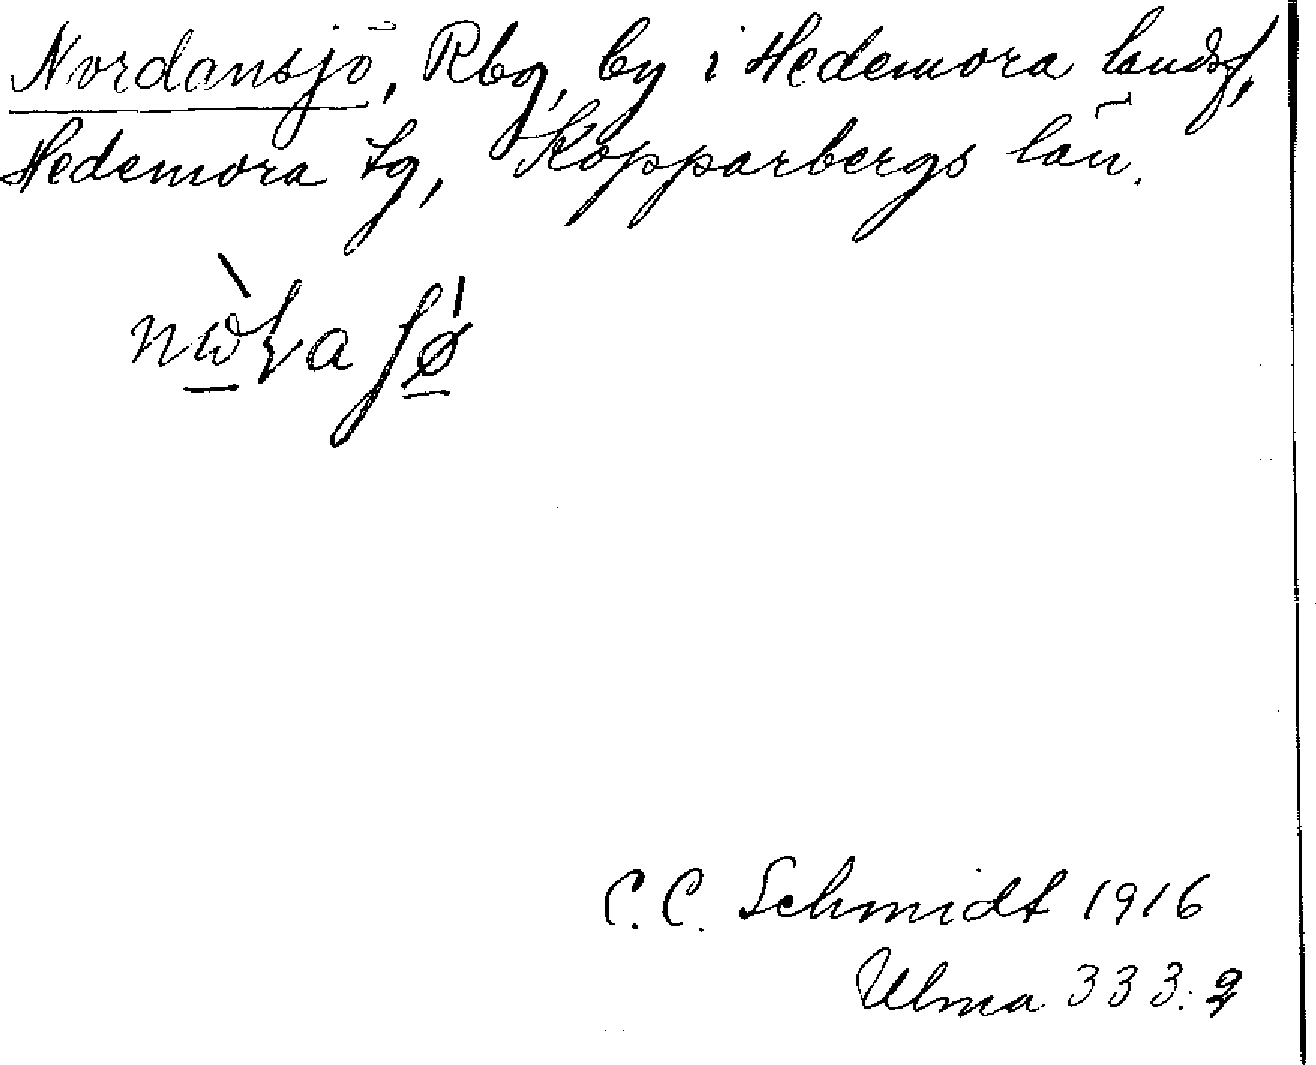 Nordansjö, Rbg, by i Hedemora landsf,
Hedemora tg, Kopparbergs län.
C. C. Schmidt 1916
Ulma 333:2